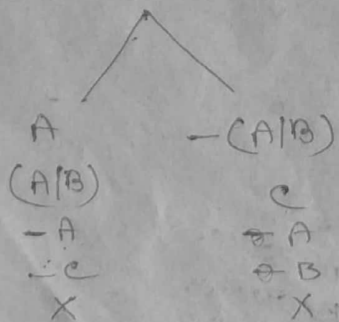 A
(A|B)
-A
-C
X
-(A|B)
C
A
B
X